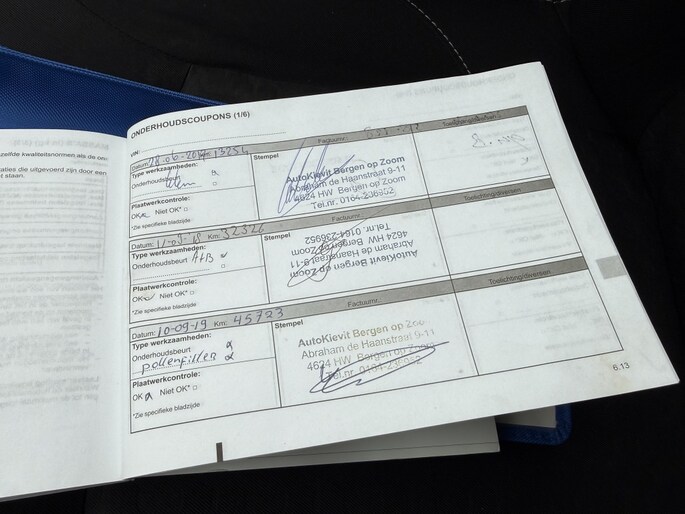 zelfde kwaliteitsnormen als de
aties die uitgevoerd zijn door een
t staan.
ONDERHOUDSCOUPONS (1/6)
VIN:
Datum: 28-06-2017 Km: 13254 Factuurnr.
Type werkzaamheden: Stempel
Onderhoudsbeurt
AutoKievit Bergen op Zoom
Abraham de Haanstraat 9-11
4624 HW Bergen op Zoom
Tel.nr. 0164-236952
Plaatwerkcontrole:
OK Niet OK*
*Zie specifieke bladzijde
Datum: 11-09-18 Km: 32326 Factuurnr. Toelichting/diversen
Type werkzaamheden: Stempel
Onderhoudsbeurt A+B
AutoKievit Bergen op Zoom
Abraham de Haanstraat 9-11
4624 HW Bergen op Zoom
Tel.nr. 0164-236952
Plaatwerkcontrole:
OK Niet OK*
*Zie specifieke bladzijde
Datum: 10-09-19 Km: 45723 Factuurnr. Toelichting/diversen
Type werkzaamheden: Stempel
Onderhoudsbeurt
pollenfilter
AutoKievit Bergen op Zoom
Abraham de Haanstraat 9-11
4624 HW Bergen op Zoom
Tel.nr. 0164-236952
Plaatwerkcontrole:
OK Niet OK*
*Zie specifieke bladzijde
6.13